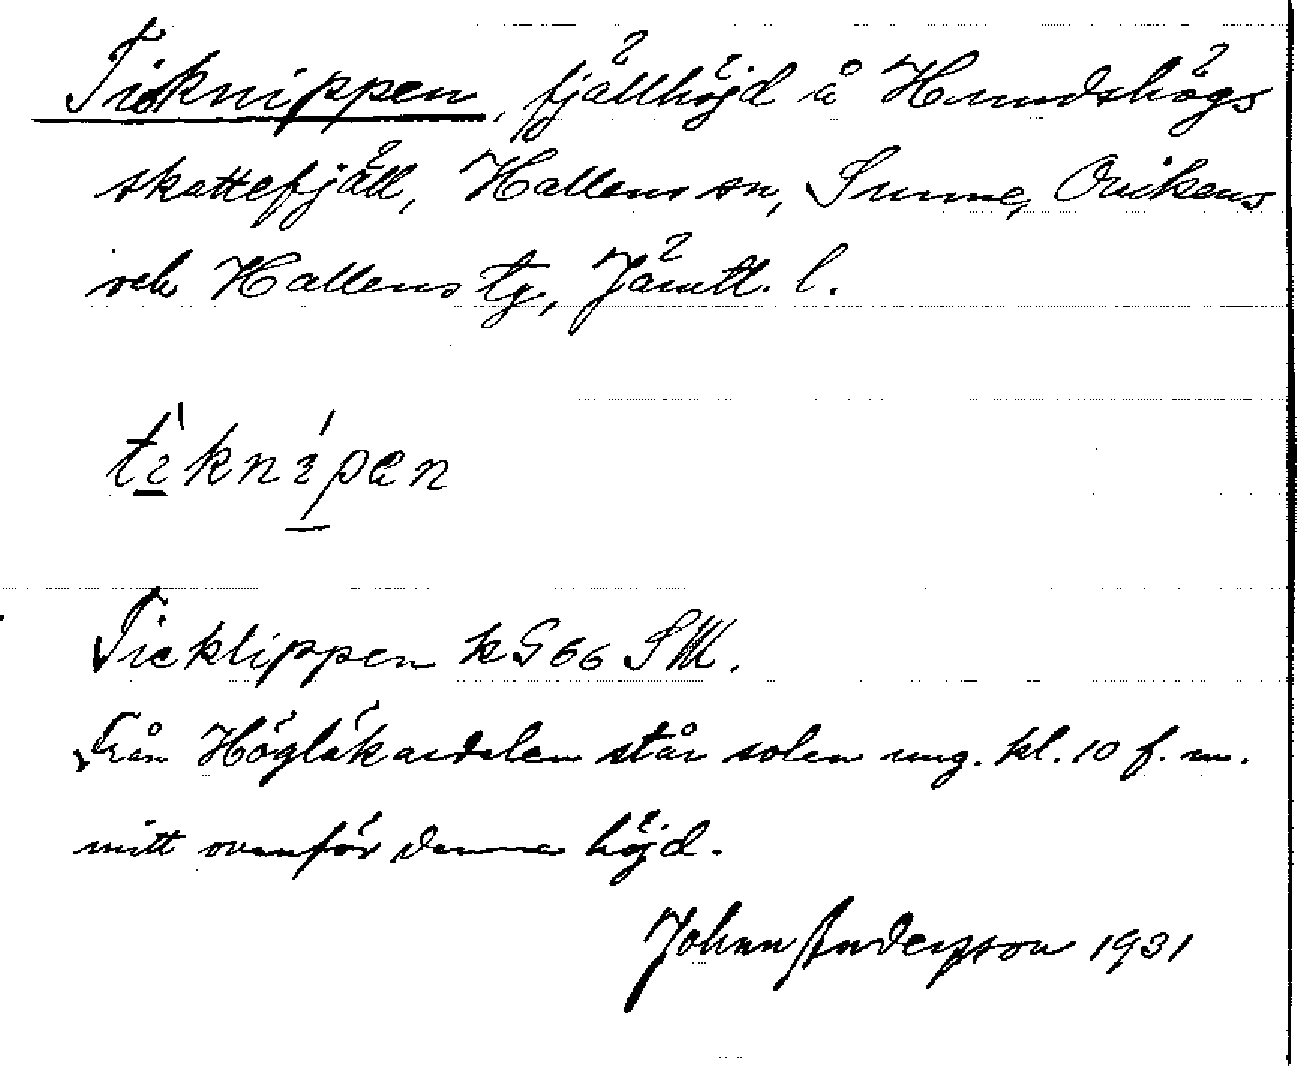 Ticknippen, fjällhöjd å Hundshögs
skattefjäll, Hallens sn, Sunne, Ovikens
och Hallens tg, Jämtl. l.
tiknipen
Ticklippen kG66 SM.
Från Höglekardalen står solen ung. kl. 10 f. m.
mitt ovanför denna höjd.
Johan Andersson 1931